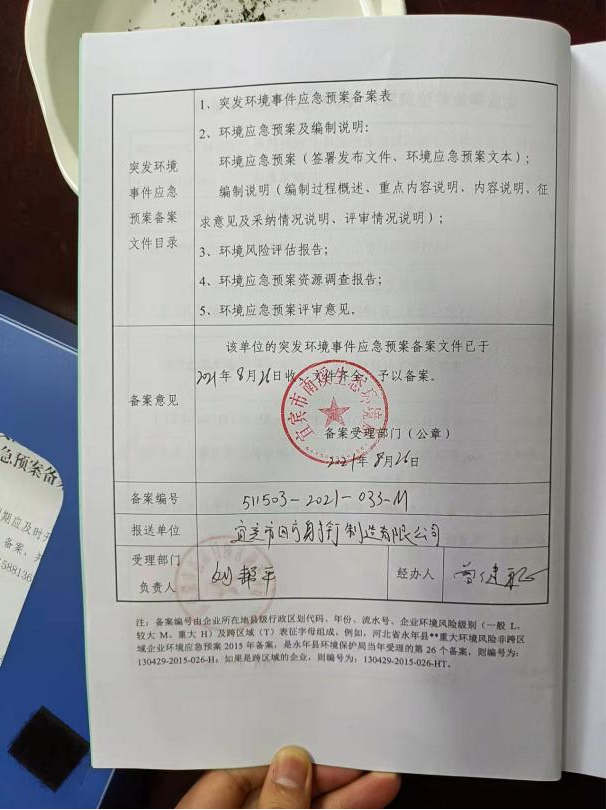 突发环境
事件应急
预案备案
文件目录
1、突发环境事件应急预案备案表
2、环境应急预案及编制说明:
环境应急预案（签署发布文件、环境应急预案文本）;
编制说明（编制过程概述、重点内容说明、内容说明、征
求意见及采纳情况说明、评审情况说明）;
3、环境风险评估报告;
4、环境应急预案资源调查报告;
5、环境应急预案评审意见。
备案意见
该单位的突发环境事件应急预案备案文件已于
2021年8月26日收，文件齐全，予以备案。
宜宾市南溪生态环境局
备案受理部门（公章）
2021年8月26日
备案编号
511503-2021-033-M
报送单位
制造有限公司
受理部门
负责人
经办人
注: 备案编号由企业所在地县级行政区划代码、年份、流水号、企业环境风险级别（一般 L、
较大 M、重大 H）及跨区域（T）表征字母组成。例如，河北省永年县**重大环境风险非跨区
域企业环境应急预案 2015 年备案，是永年县环境保护局当年受理的第 26 个备案，则编号为:
130429-2015-026-H; 如果是跨区域的企业，则编号为: 130429-2015-026-HT。
急预案备
期应及时
备案，并
588136